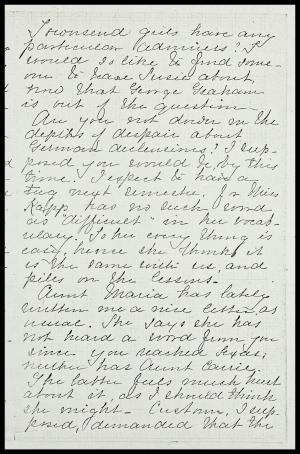 Townsend girls have any
particular admirers? I
would so like to find some-
one to tease Susie about,
now that George Graham
is out of the question.
Are you not down in the
depths of despair about
German declensions? I sup-
posed you would be by this
time. I expect to have a
tug next semester, for Miss
Kapp has no such word
as "difficult" in her vocab-
ulary. To her every thing is
easy, hence she thinks it
is the same with us, and
piles on the lessons.
Aunt Maria has lately
written me a nice letter, as
usual. She says she has
not heard a word from you
since you reached Texas;
neither has Aunt Carrie.
The latter feels much hurt
about it, as I should think
she might. Custom, I sup-
posed, demanded that the